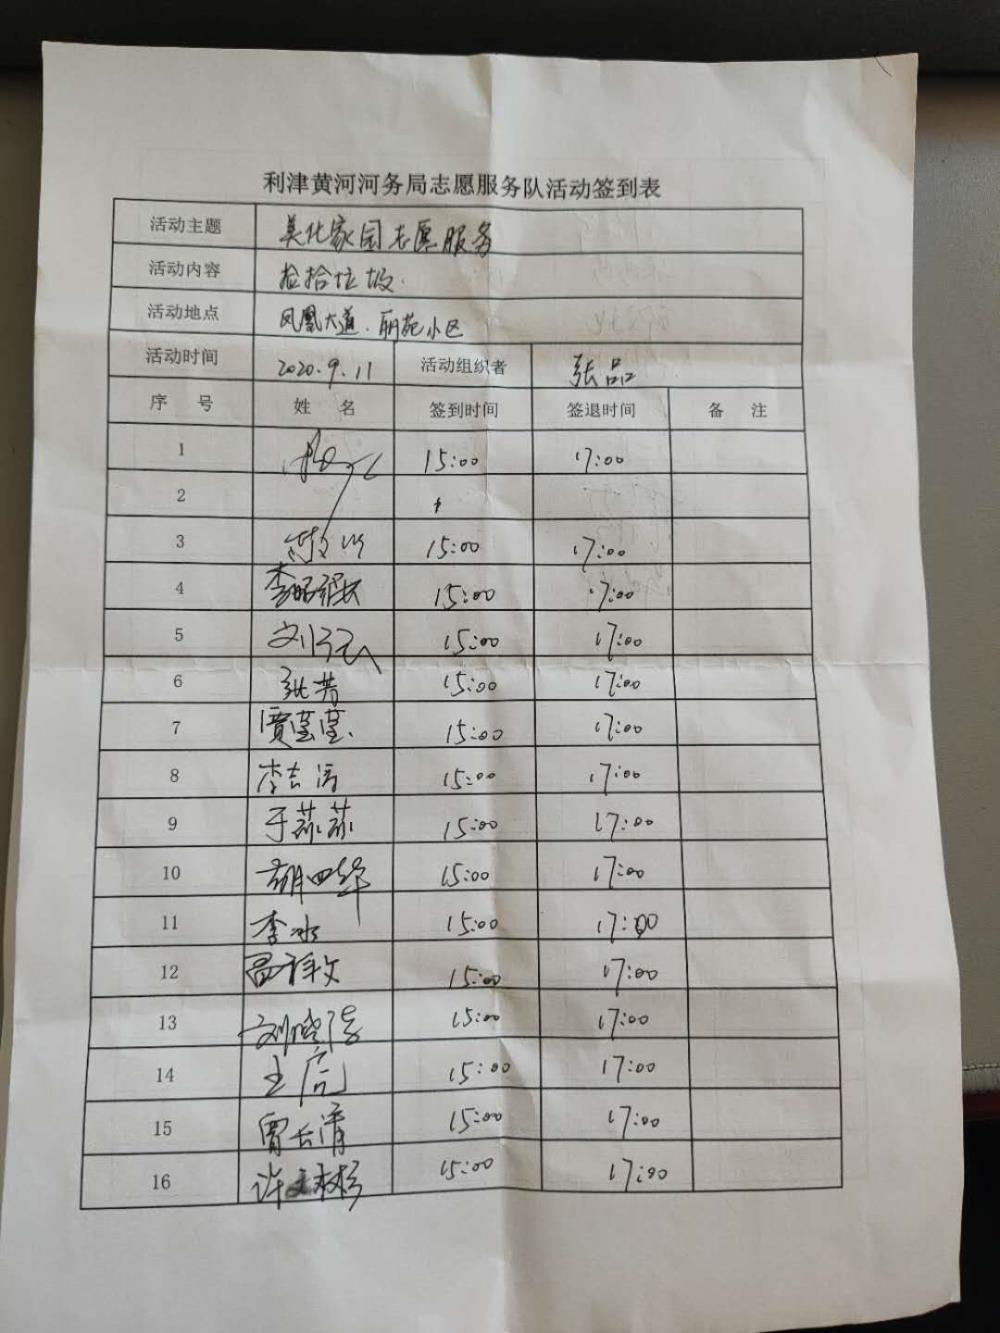 利津黄河河务局志愿服务队活动签到表
活动主题 美化家园志愿服务
活动内容 捡拾垃圾.
活动地点 凤凰大道、丽苑小区
活动时间 2020.9.11 活动组织者 张品
序 号 姓 名 签到时间 签退时间 备 注
1 15:00 17:00
2
3 15:00 17:00
4 李 15:00 17:00
5 刘 15:00 17:00
6 张芳 15:00 17:00
7 贾莹莹 15:00 17:00
8 李吉涛 15:00 17:00
9 于蒜蒜 15:00 17:00
10 胡四华 15:00 17:00
11 李冰 15:00 17:00
12 15:00 17:00
13 刘晓 15:00 17:00
14 15:00 17:00
15 长清 15:00 17:00
16 许文彬 15:00 17:00